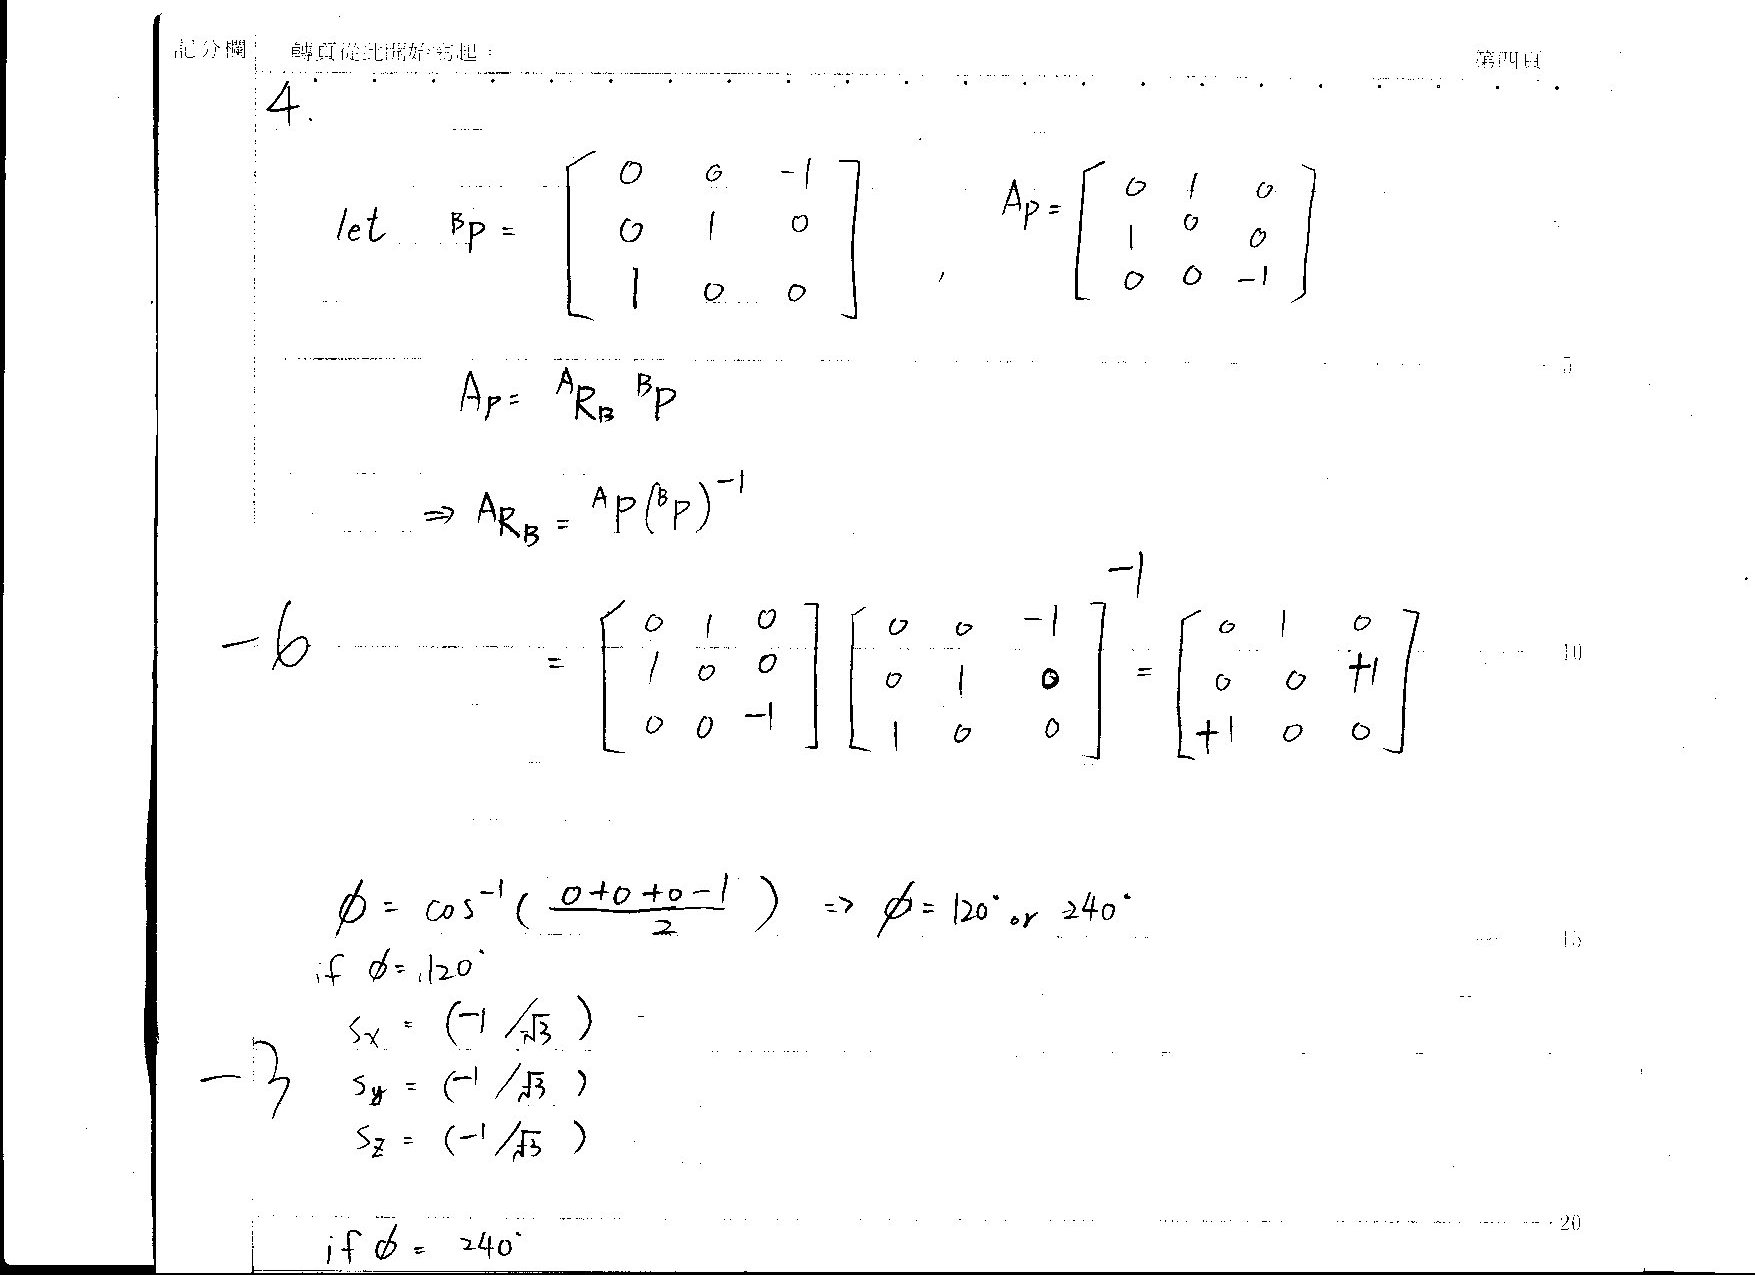 記分欄 轉頁從此開始寫起: 第四頁
4.
let ᴮP = [ 0 0 -1 ; 0 1 0 ; 1 0 0 ] , ᴬP = [ 0 1 0 ; 1 0 0 ; 0 0 -1 ]
5
ᴬP = ᴬR_B ᴮP
⇒ ᴬR_B = ᴬP(ᴮP)⁻¹
-6 = [ 0 1 0 ; 1 0 0 ; 0 0 -1 ] [ 0 0 -1 ; 0 1 0 ; 1 0 0 ]⁻¹ = [ 0 1 0 ; 0 0 +1 ; +1 0 0 ] 10
φ = cos⁻¹( (0+0+0-1)/2 ) => φ = 120° or 240°
15
if φ = 120°
Sx = (-1/√3)
-3 Sy = (-1/√3)
Sz = (-1/√3)
20
if φ = 240°